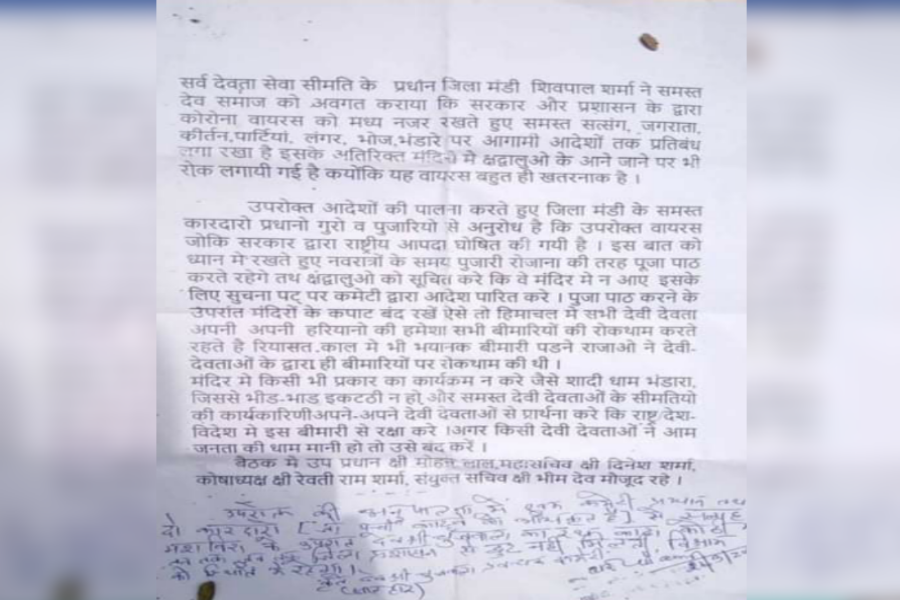 सर्व देवता सेवा सीमति के प्रधान जिला मंडी शिवपाल शर्मा ने समस्त
देव समाज को अवगत कराया कि सरकार और प्रशासन के द्वारा
कोरोना वायरस को मध्य नजर रखते हुए समस्त सत्संग, जगराता,
कीर्तन,पार्टियां, लंगर, भोज,भंडारे पर आगामी आदेशों तक प्रतिबंध
लगा रखा है इसके अतिरिक्त मंदिरो मे क्षद्वालुओ के आने जाने पर भी
रोक लगायी गई है कयोंकि यह वायरस बहुत ही खतरनाक है ।
उपरोक्त आदेशों की पालना करते हुए जिला मंडी के समस्त
कारदारो प्रधानो गुरो व पुजारियो से अनुरोध है कि उपरोक्त वायरस
जोकि सरकार द्वारा राष्ट्रीय आपदा घोषित की गयी है । इस बात को
ध्यान मे रखते हुए नवरात्रों के समय पुजारी रोजाना की तरह पूजा पाठ
करते रहेगे तथ क्षंद्वालुओ को सूचित करे कि वे मंदिर मे न आए इसके
लिए सुचना पट् पर कमेटी द्वारा आदेश पारित करे । पुजा पाठ करने के
उपरांत मंदिरों के कपाट बंद रखें ऐसे तो हिमाचल मे सभी देवी देवता
अपनी अपनी हरियानो की हमेशा सभी बीमारियों की रोकथाम करते
रहते है रियासत काल मे भी भयानक बीमारी पडने राजाओ ने देवी-
देवताओं के द्वारा ही बीमारियों पर रोकथाम की थी ।
मंदिर मे किसी भी प्रकार का कार्यक्रम न करे जैसे शादी धाम भंडारा,
जिससे भीड-भाड इकटठी न हो और समस्त देवी देवताओं के सीमतियो
की कार्यकारिणीअपने-अपने देवी देवताओं से प्रार्थना करे कि राष्ट्र/देश-
विदेश मे इस बीमारी से रक्षा करे ।अगर किसी देवी देवताओं ने आम
जनता की धाम मानी हो तो उसे बंद करें ।
बैठक मे उप प्रधान क्षी मोहन लाल,महासचिव क्षी दिनेश शर्मा,
कोषाध्यक्ष क्षी रेवती राम शर्मा, संयुक्त सचिव क्षी भीम देव मोजूद रहे ।
उपरोक्त की
दो कारदारो
के उपरांत